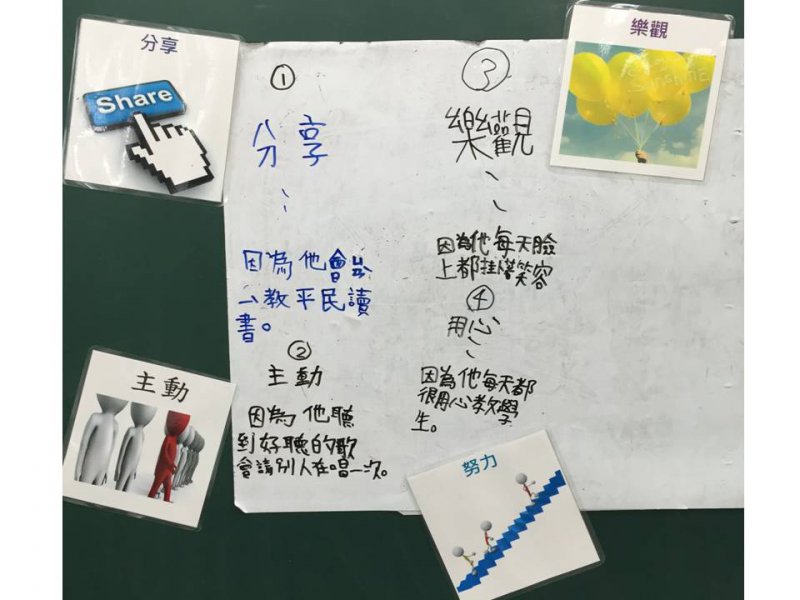 分享
Share
主動
①
分享
：
因為他會
教平民讀
書。
②
主動
因為他聽
到好聽的歌
會請別人在唱一次。
③
樂觀
：
因為他每天臉
上都掛滿笑容
④
用心
：
因為他每天都
很用心教學
生。
樂觀
努力